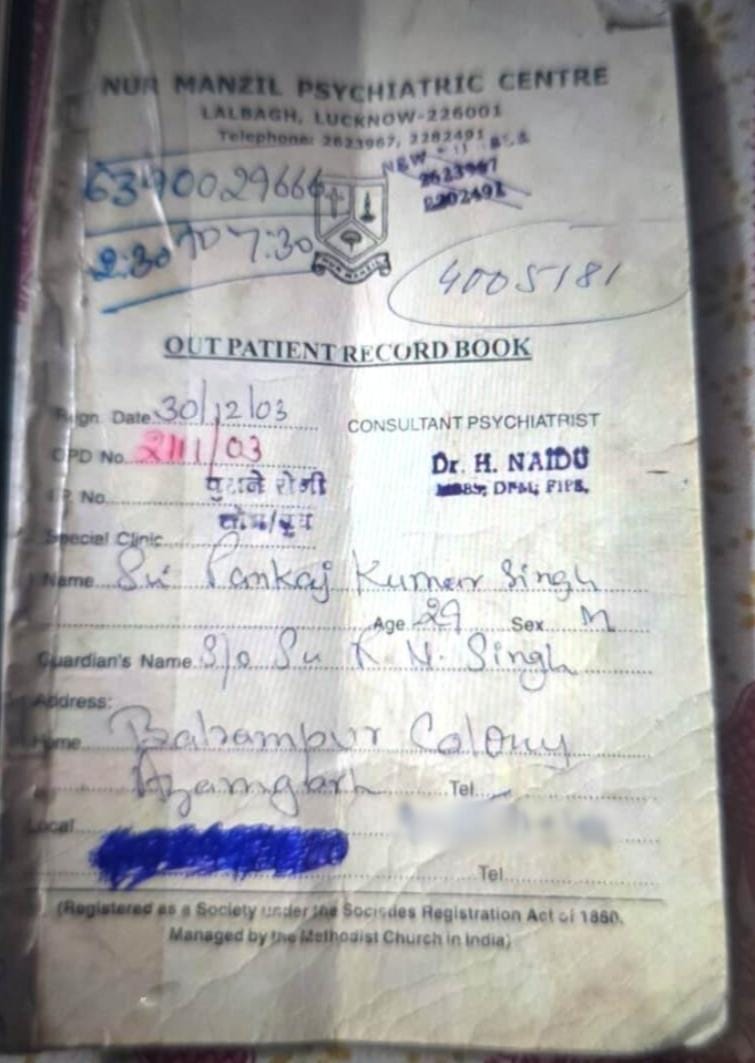 NUR MANZIL PSYCHIATRIC CENTRE
LALBAGH, LUCKNOW-226001
Telephone: 2623967, 2282491
NEW
2623967
2202491
6390029666
2:30 TO 7:30
NUR MANZIL
4005181
OUT PATIENT RECORD BOOK
Regn. Date 30/12/03
CONSULTANT PSYCHIATRIST
OPD No. 2111/03
Dr. H. NAIDU
MBBS, DPM, FIPS.
I.P. No.
पुराने रोगी
सोम/बुध
Special Clinic
Name Sri Pankaj Kumar Singh
Age 29 Sex M
Guardian's Name S/o Sri K. N. Singh
Address:
Home Balrampur Colony
Azamgarh Tel.
Local
Tel.
(Registered as a Society under the Societies Registration Act of 1860.
Managed by the Methodist Church in India)